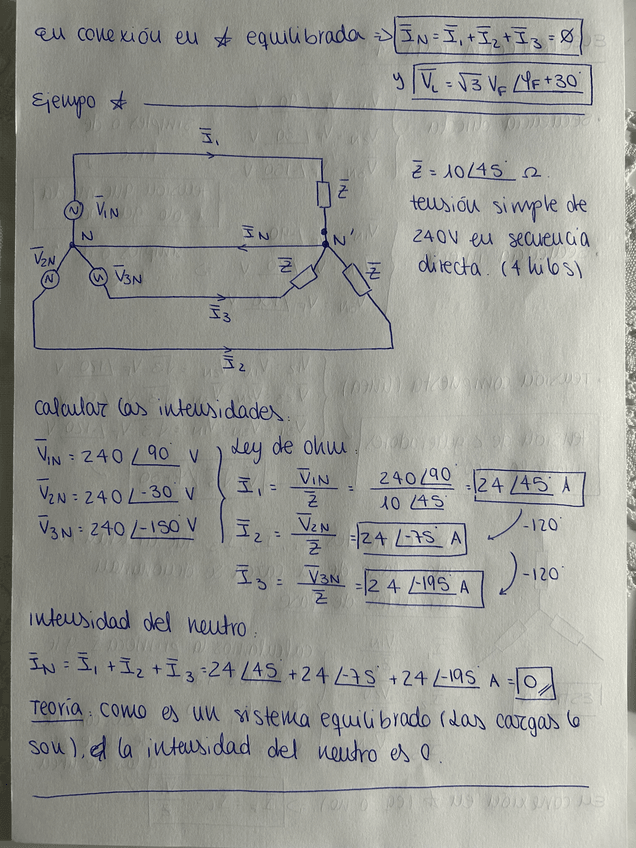 en conexión en ⅄ equilibrada => I̅N = I̅1 + I̅2 + I̅3 = 0
y V̅L = √3 VF ∠φF+30°
Ejempo ⅄
I̅1
V̅1N
Z̅
Z̅ = 10∠45° Ω.
tensión simple de
240V en secuencia
directa. (4 hilos)
N
I̅N
N'
V̅2N
V̅3N
Z̅
Z̅
I̅3
I̅2
calcular las intensidades.
V̅1N = 240 ∠90° V
V̅2N = 240 ∠-30° V
V̅3N = 240 ∠-150° V
Ley de ohm.
I̅1 = V̅1N / Z̅ = 240∠90° / 10∠45° = 24 ∠45° A
-120°
I̅2 = V̅2N / Z̅ = 24 ∠-75° A
-120°
I̅3 = V̅3N / Z̅ = 24 ∠-195° A
intensidad del neutro.
I̅N = I̅1 + I̅2 + I̅3 = 24 ∠45° + 24 ∠-75° + 24 ∠-195° A = 0
Teoría: como es un sistema equilibrado (Las cargas lo
son), la intensidad del neutro es 0.